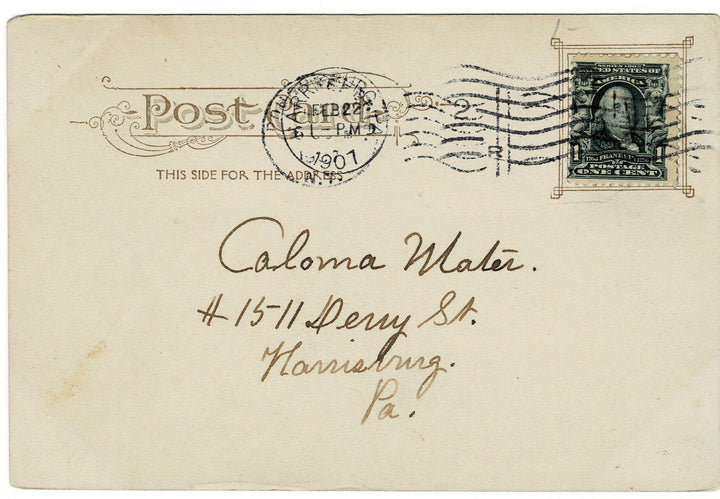 Post Card
THIS SIDE FOR THE ADDRESS
FEB 22
PM
1907
N.Y.
2
R
SERIES 1902
UNITED STATES OF
AMERICA
FRANKLIN
POSTAGE
ONE CENT
Caloma Mater.
# 1511 Derry St.
Harrisburg.
Pa.